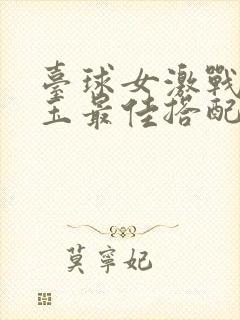 臺球女激戰
王最佳搭配
莫寧妃